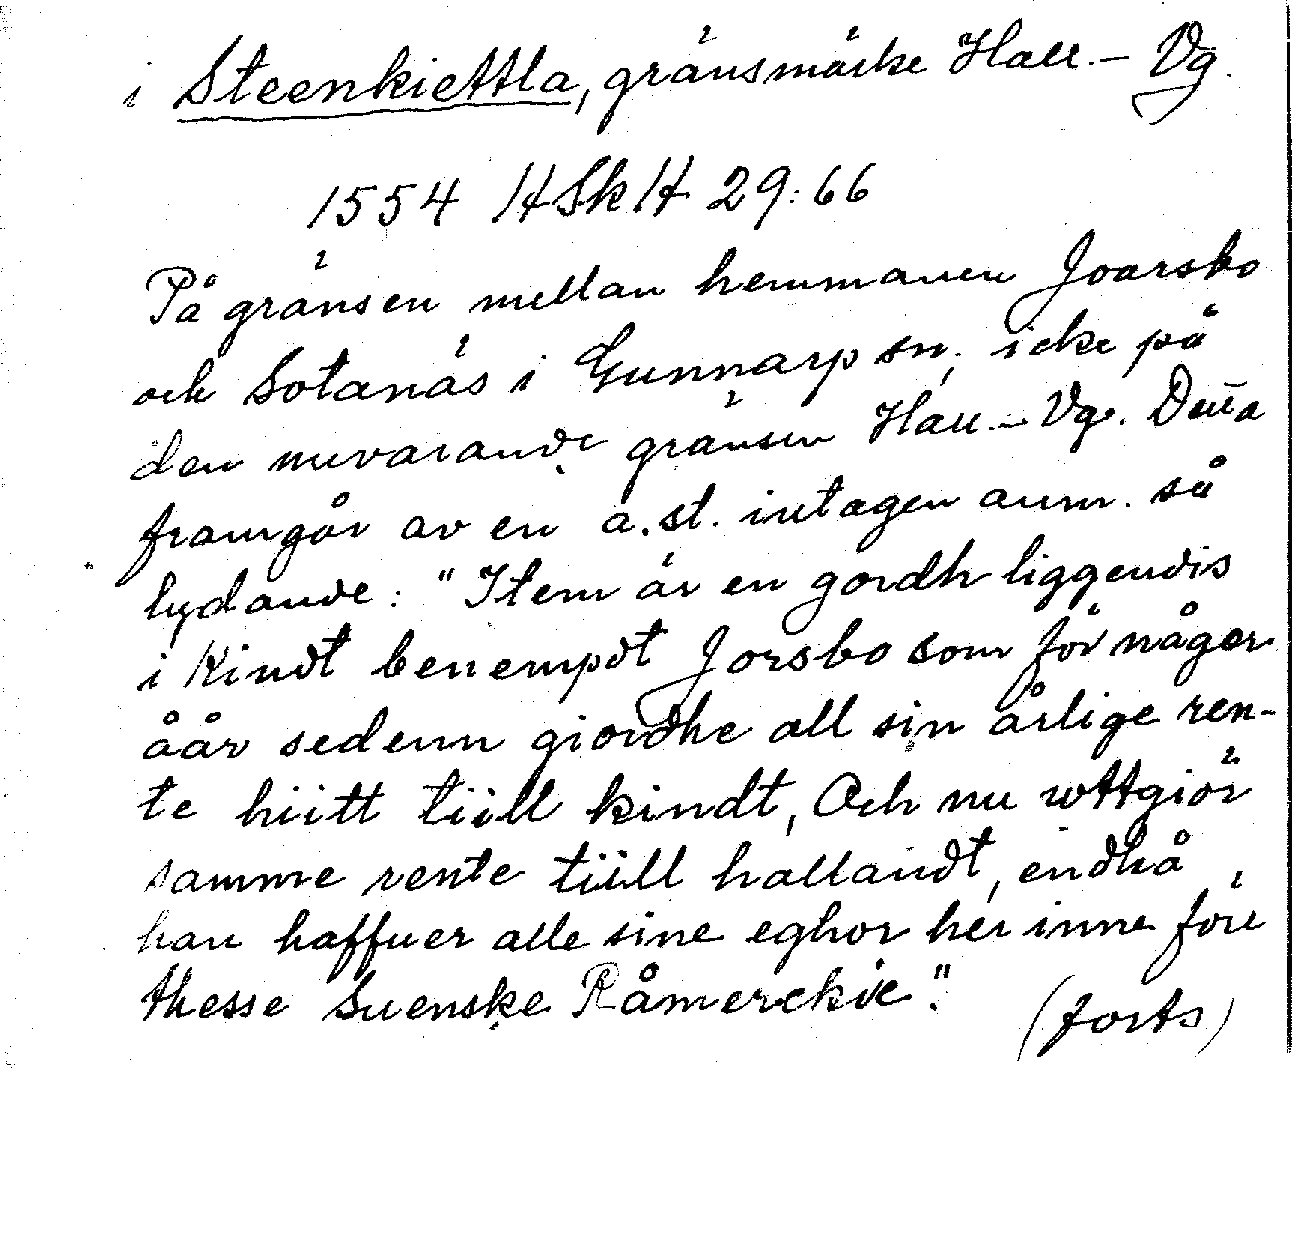 i Steenkiettla, gränsmärke Hall. – Vg.
1554 HSkH 29:66
På gränsen mellan hemmanen Joarsbo
och Sotanäs i Gunnarp sn, icke på
den nuvarande gränsen Hall. – Vg. Detta
framgår av en a. st. intagen anm. så
lydande: "Item är en gordh liggendis
i Kindt benempdt Jorsbo som för någer
åår sedenn giordhe all sin årlige ren-
te hiitt tiill kindt, Och nu wttgiör
samme rente tiill hallandt, endhå
han haffuer alle sine eghor her inne före
thesse Suenske Råmerckie".
(forts)